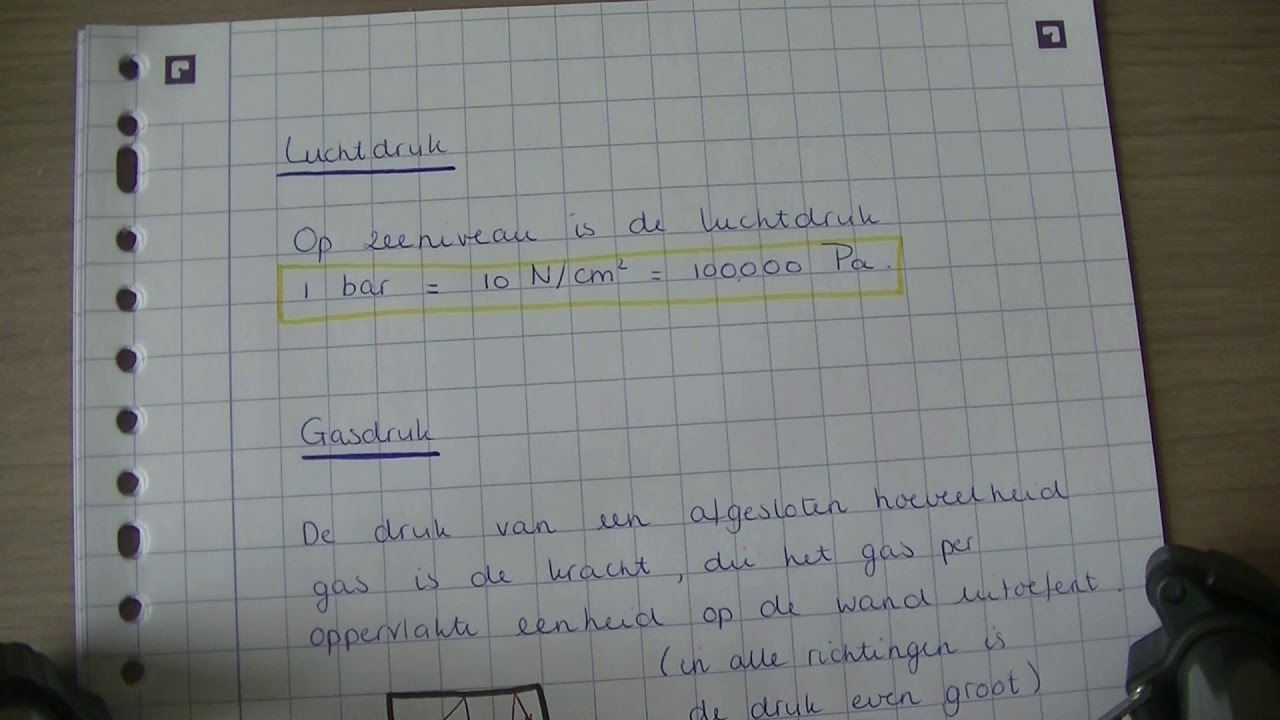 Luchtdruk
Op zeeniveau is de luchtdruk
1 bar = 10 N/cm² = 100.000 Pa.
Gasdruk
De druk van een afgesloten hoeveelheid
gas is de kracht, die het gas per
oppervlakte eenheid op de wand uitoefent.
(in alle richtingen is
de druk even groot)